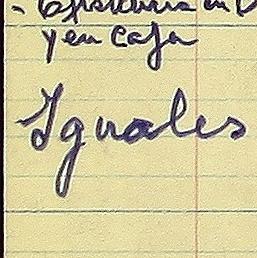 y en Caja
Iguales